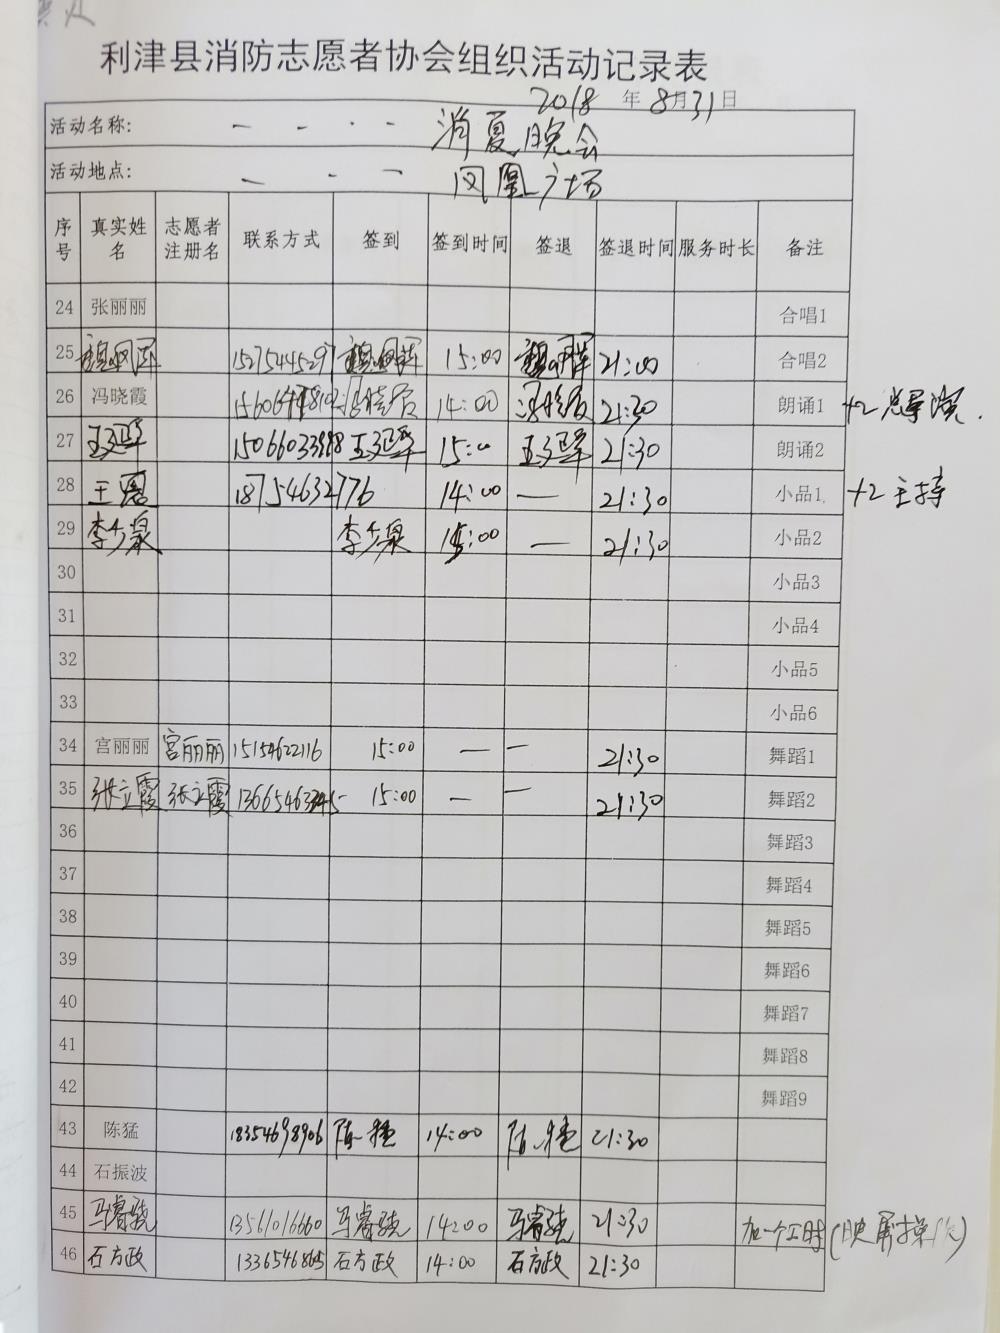 利津县消防志愿者协会组织活动记录表
2018 年 8月31日
活动名称: 消夏晚会
活动地点: 凤凰广场
序号 真实姓名 志愿者注册名 联系方式 签到 签到时间 签退 签退时间 服务时长 备注
24 张丽丽 合唱1
25 15275445297 15:00 21:00 合唱2
26 冯晓霞 冯晓霞 14:00 冯晓霞 21:30 朗诵1 +2总导演.
27 15:00 21:30 朗诵2
28 18754632776 14:00 — 21:30 小品1 +2主持
29 李少泉 李少泉 — 21:30 小品2
30 小品3
31 小品4
32 小品5
33 小品6
34 宫丽丽 宫丽丽 15154622116 15:00 — — 21:30 舞蹈1
35 张立霞 张立霞 15:00 — — 21:30 舞蹈2
36 舞蹈3
37 舞蹈4
38 舞蹈5
39 舞蹈6
40 舞蹈7
41 舞蹈8
42 舞蹈9
43 陈猛 18354698906 14:00 21:30
44 石振波
45 马睿骁 13561016660 马睿骁 14:00 马睿骁 21:30 加一个工时
46 石方政 石方政 14:00 石方政 21:30